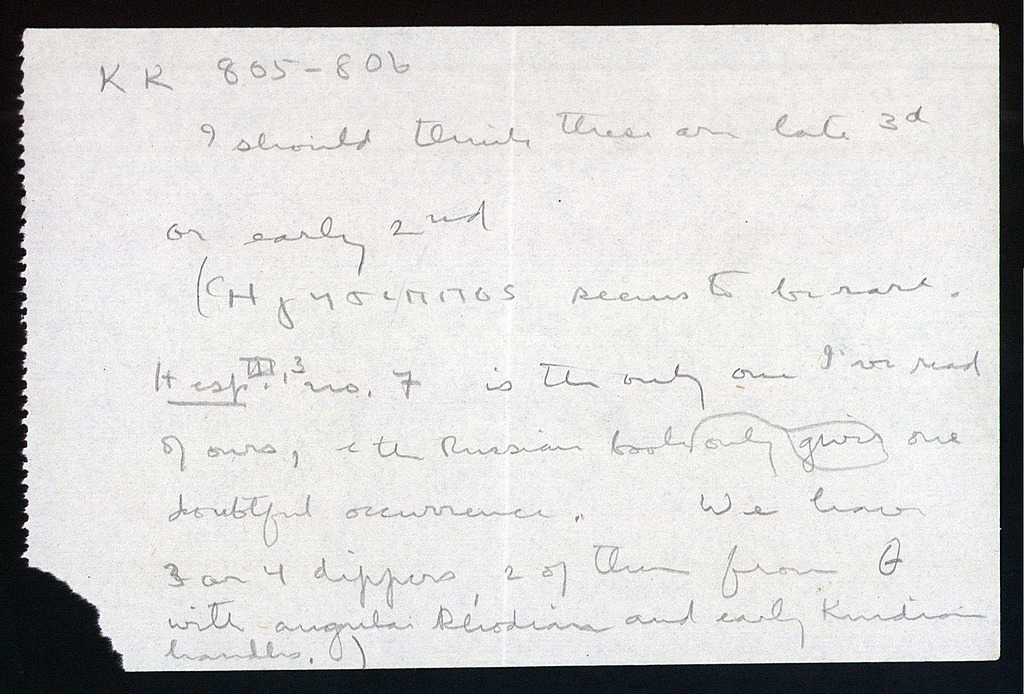 KK 805-806
I should think these are late 3d
or early 2nd
( seems to be rare.
Hesp. III, 3 no. 7 is the only one I've read
of ours, & the Russian book only gives one
doubtful occurrence. We have
3 or 4 dippers, 2 of them from θ
with angular Rhodian and early Knidian
handles.)